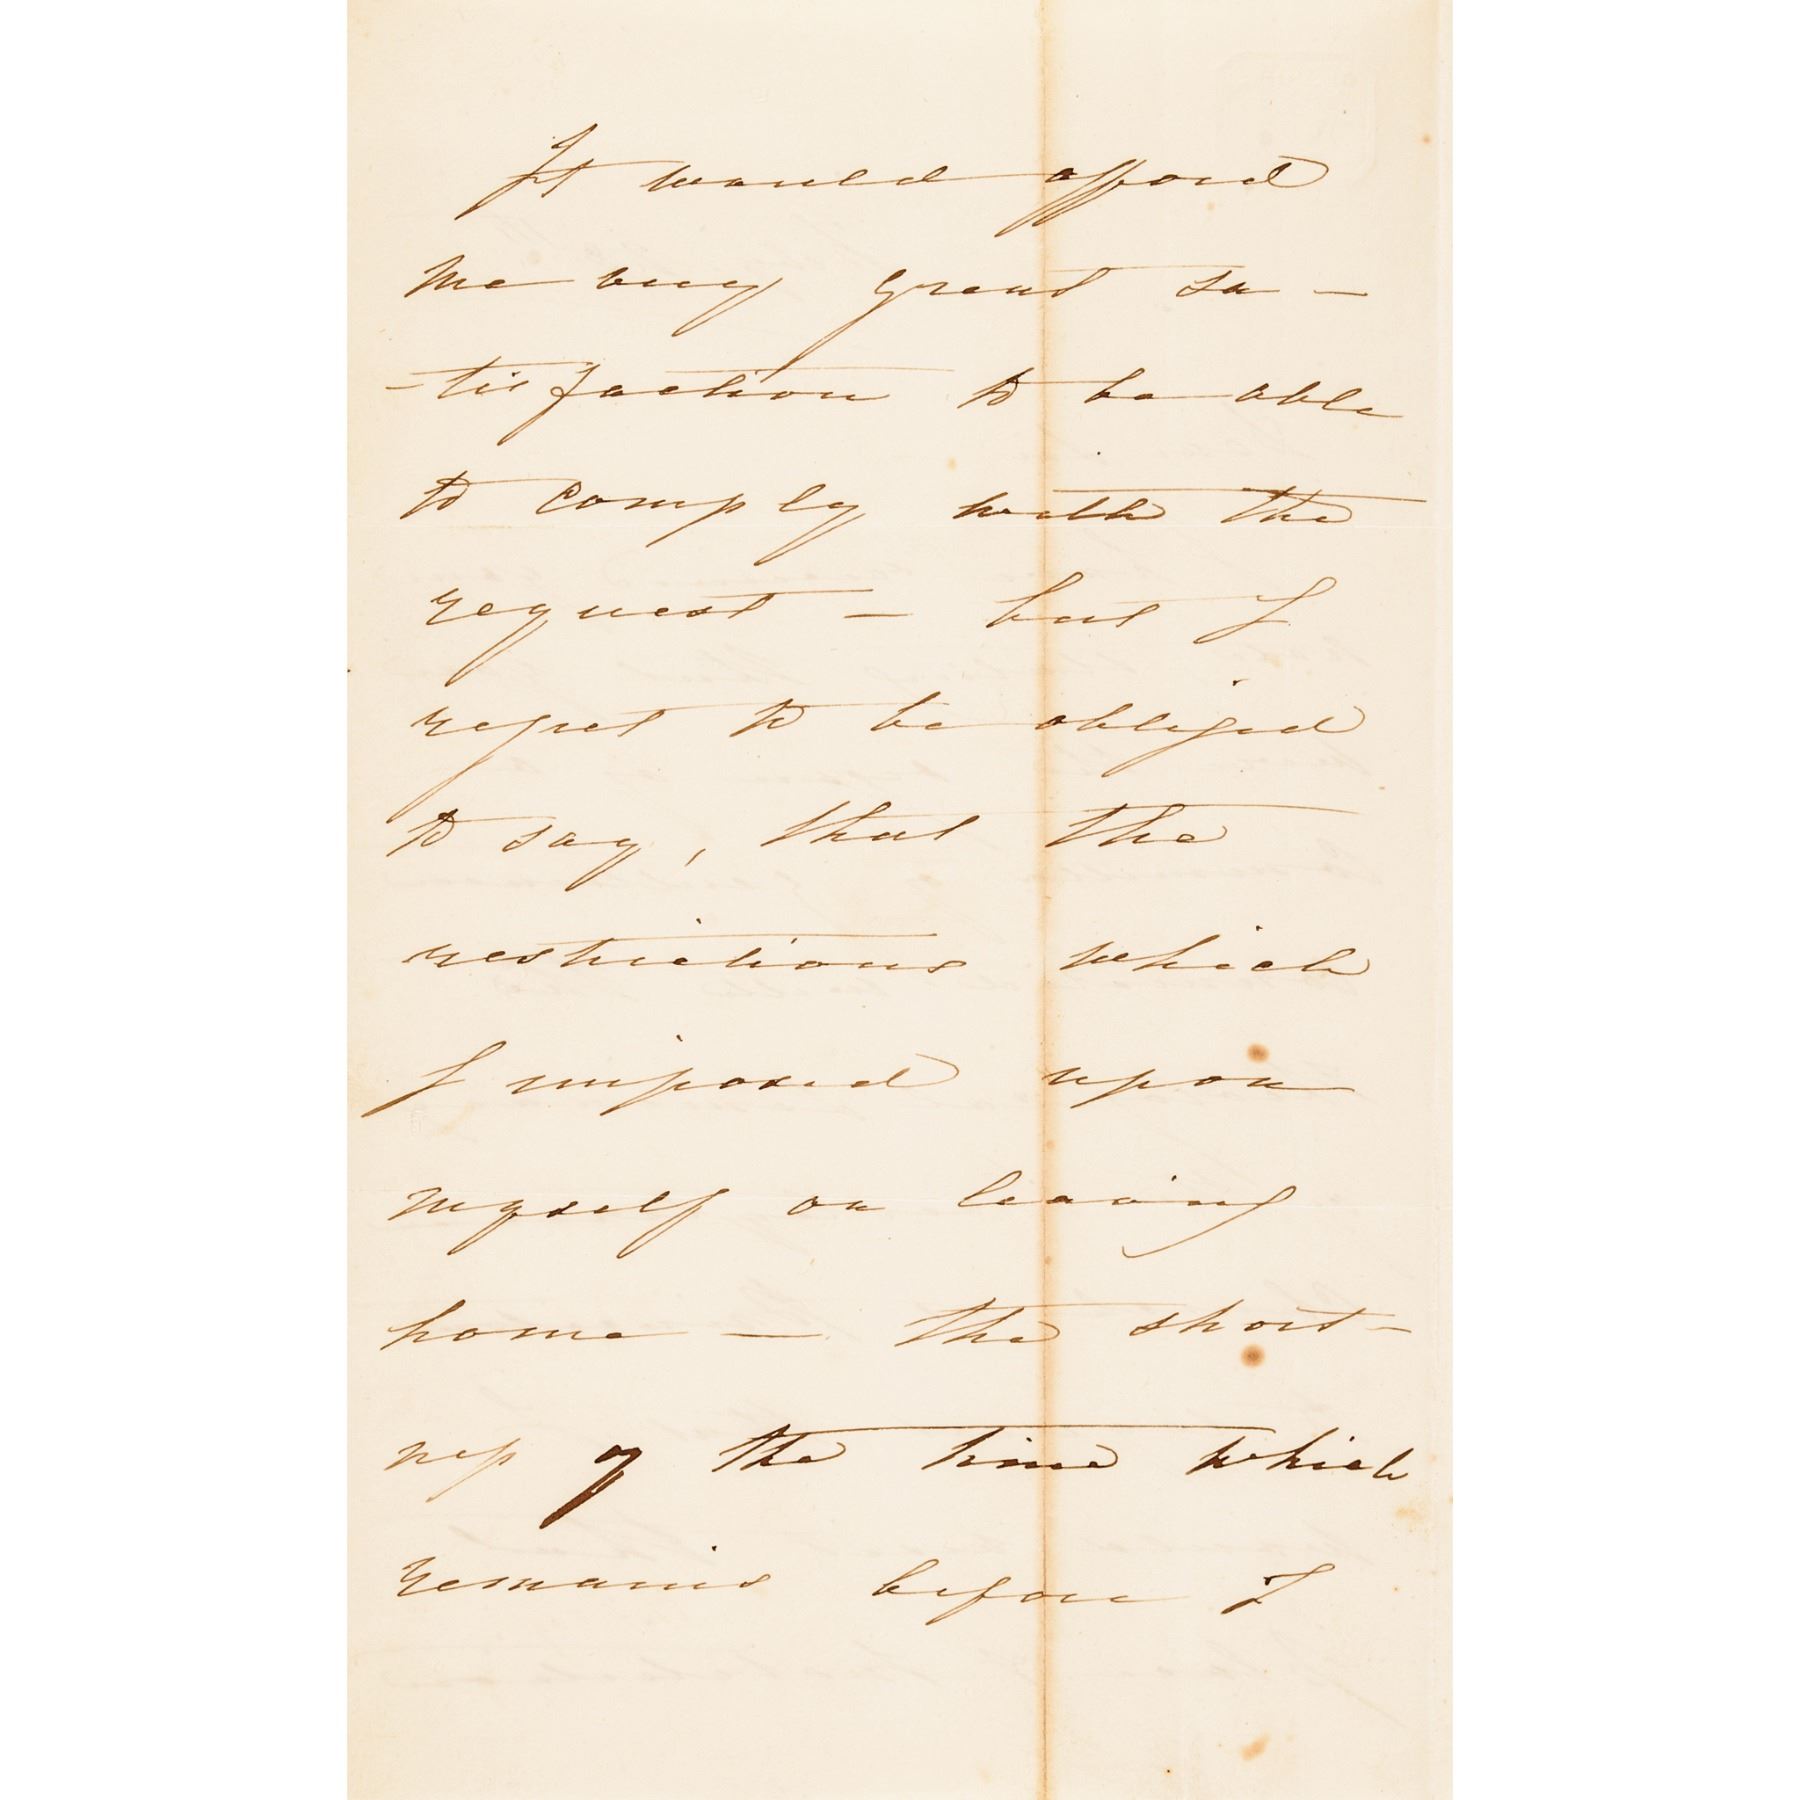 It would afford
me very great sa-
-tisfaction to be able
to comply with the
request - but I
regret to be obliged
to say, that the
restrictions which
I imposed upon
myself on leaving
home — the short-
ness of the time which
remains before I